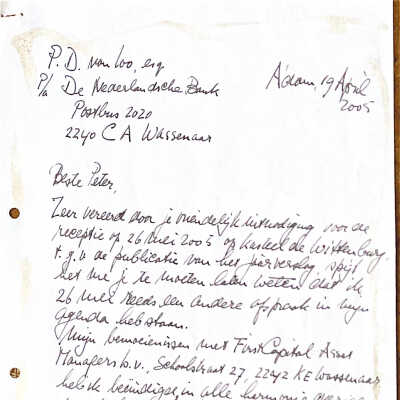 P. D. van Loo, esq.
P/a De Nederlandsche Bank
Postbus 2020
2240 CA Wassenaar
A'dam, 19 April
2005
Beste Peter,
Zeer vereerd door je vriendelijk uitnodiging voor de
receptie op 26 mei 2005 op kasteel de Wittenburg
t.g.v. de publicatie van het jaarverslag, spijt
het me je te moeten laten weten dat ik
26 mei reeds een andere afspraak in mijn
agenda heb staan.
Mijn bemoeienissen met First Capital Asset
Managers b.v., Schoolstraat 27, 2242 KE Wassenaar
heb ik beëindigd, in alle harmonie